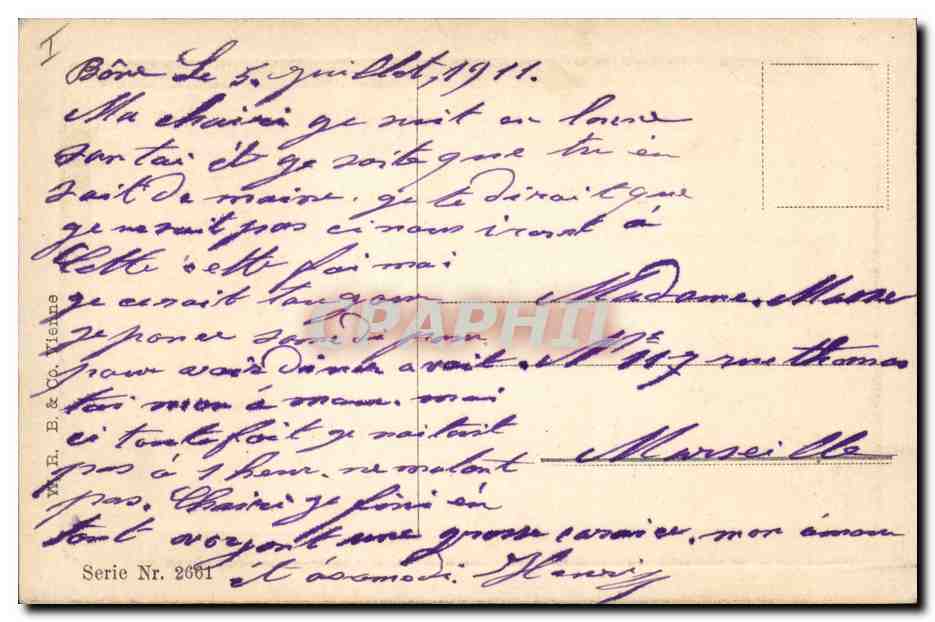 I
Bône Le 5. guillet, 1911.
Ma chairi ge suit en bonne
santai ét ge soite que tu én
sait de maime. ge te dirait que
ge ne sait pas ci nous iront à
Cette cette foi mai
ge cerait tougour
samdi pour
pour avoir diner avoit
toi mon à mour. mai
ci toutefoit ge naitait
pas à 1 heur. ne matant
pas. Chairi ge fini én
tant une grosse mon âmour
ét à samedi. Henri
Madame. Masse
Nº 117 rue thomas
Marseille
W. R. B. & Co. Vienne
Serie Nr. 2661
CPAPHIL